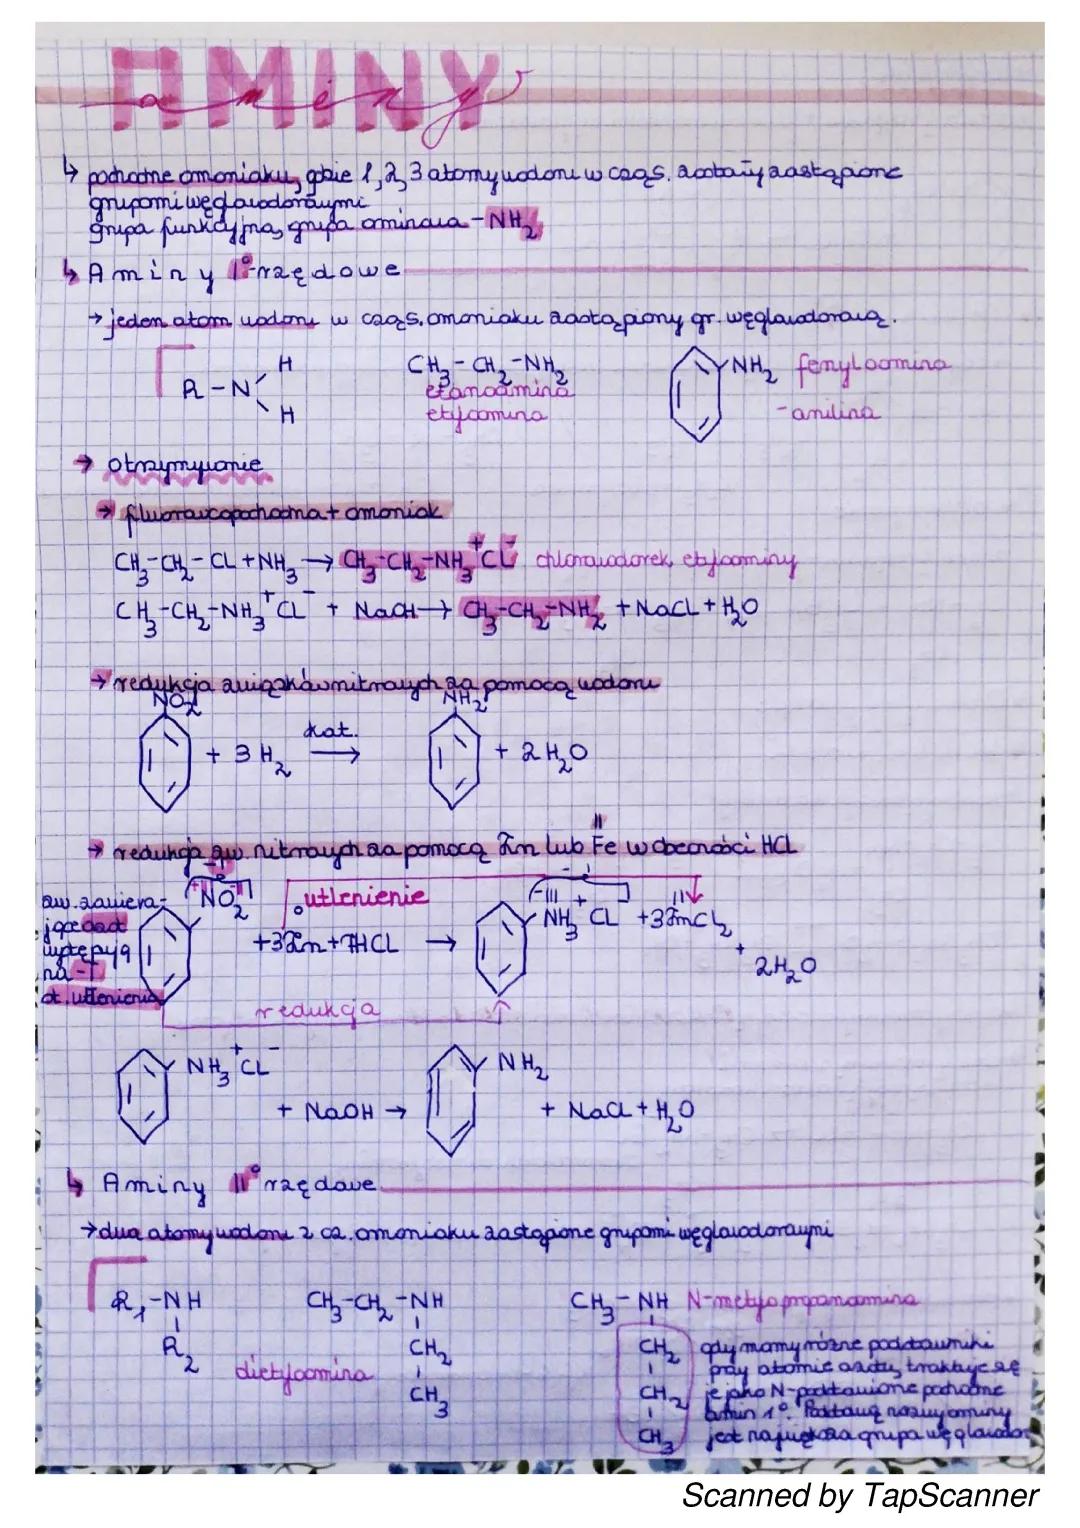 AMINY
aminy
↳ pochodne amoniaku, gdzie 1, 2, 3 atomy wodoru w cząs. zostały zastąpione
grupami węglowodorowymi
grupa funkcyjna, grupa aminowa -NH₂
↳ Aminy I°-rzędowe
→ jeden atom wodoru w cząs. amoniaku zastąpiony gr. węglowodorową.
R-N H H
CH₃-CH₂-NH₂
etanoamina
etyloamina
NH₂ fenyloamina
-anilina
→ otrzymywanie
→ fluorowcopochodna + amoniak
CH₃-CH₂-CL + NH₃ → CH₃-CH₂-NH₃⁺CL⁻ chlorowodorek etyloaminy
CH₃-CH₂-NH₃⁺CL⁻ + NaOH → CH₃-CH₂-NH₂ + NaCL + H₂O
→ redukcja związków nitrowych za pomocą wodoru
NO₂ + 3H₂ kat. → NH₂ + 2H₂O
→ redukcja zw. nitrowych za pomocą Zn lub Fe w obecności HCL
II
zw. zawiera-
jące azot
występują
na -I
st. utlenienia
NO₂ utlenienie
+3Zn+7HCL → NH₃⁺ CL⁻ +3ZnCL₂
+
2H₂O
redukcja
NH₃⁺CL⁻ + NaOH → NH₂ + NaCL + H₂O
↳ Aminy II° rzędowe
→ dwa atomy wodoru z cz. amoniaku zastąpione grupami węglowodorowymi
R₁-NH
R₂
CH₃-CH₂-NH
CH₂
CH₃
dietyloamina
CH₃-NH N-metylopropanoamina
CH₂
CH₂
CH₃
gdy mamy różne podstawniki
przy atomie azotu, traktuje się
je jako N-podstawione pochodne
amin 1°. Podstawą nazwy aminy
jest największa grupa węglowodor
Scanned by TapScanner